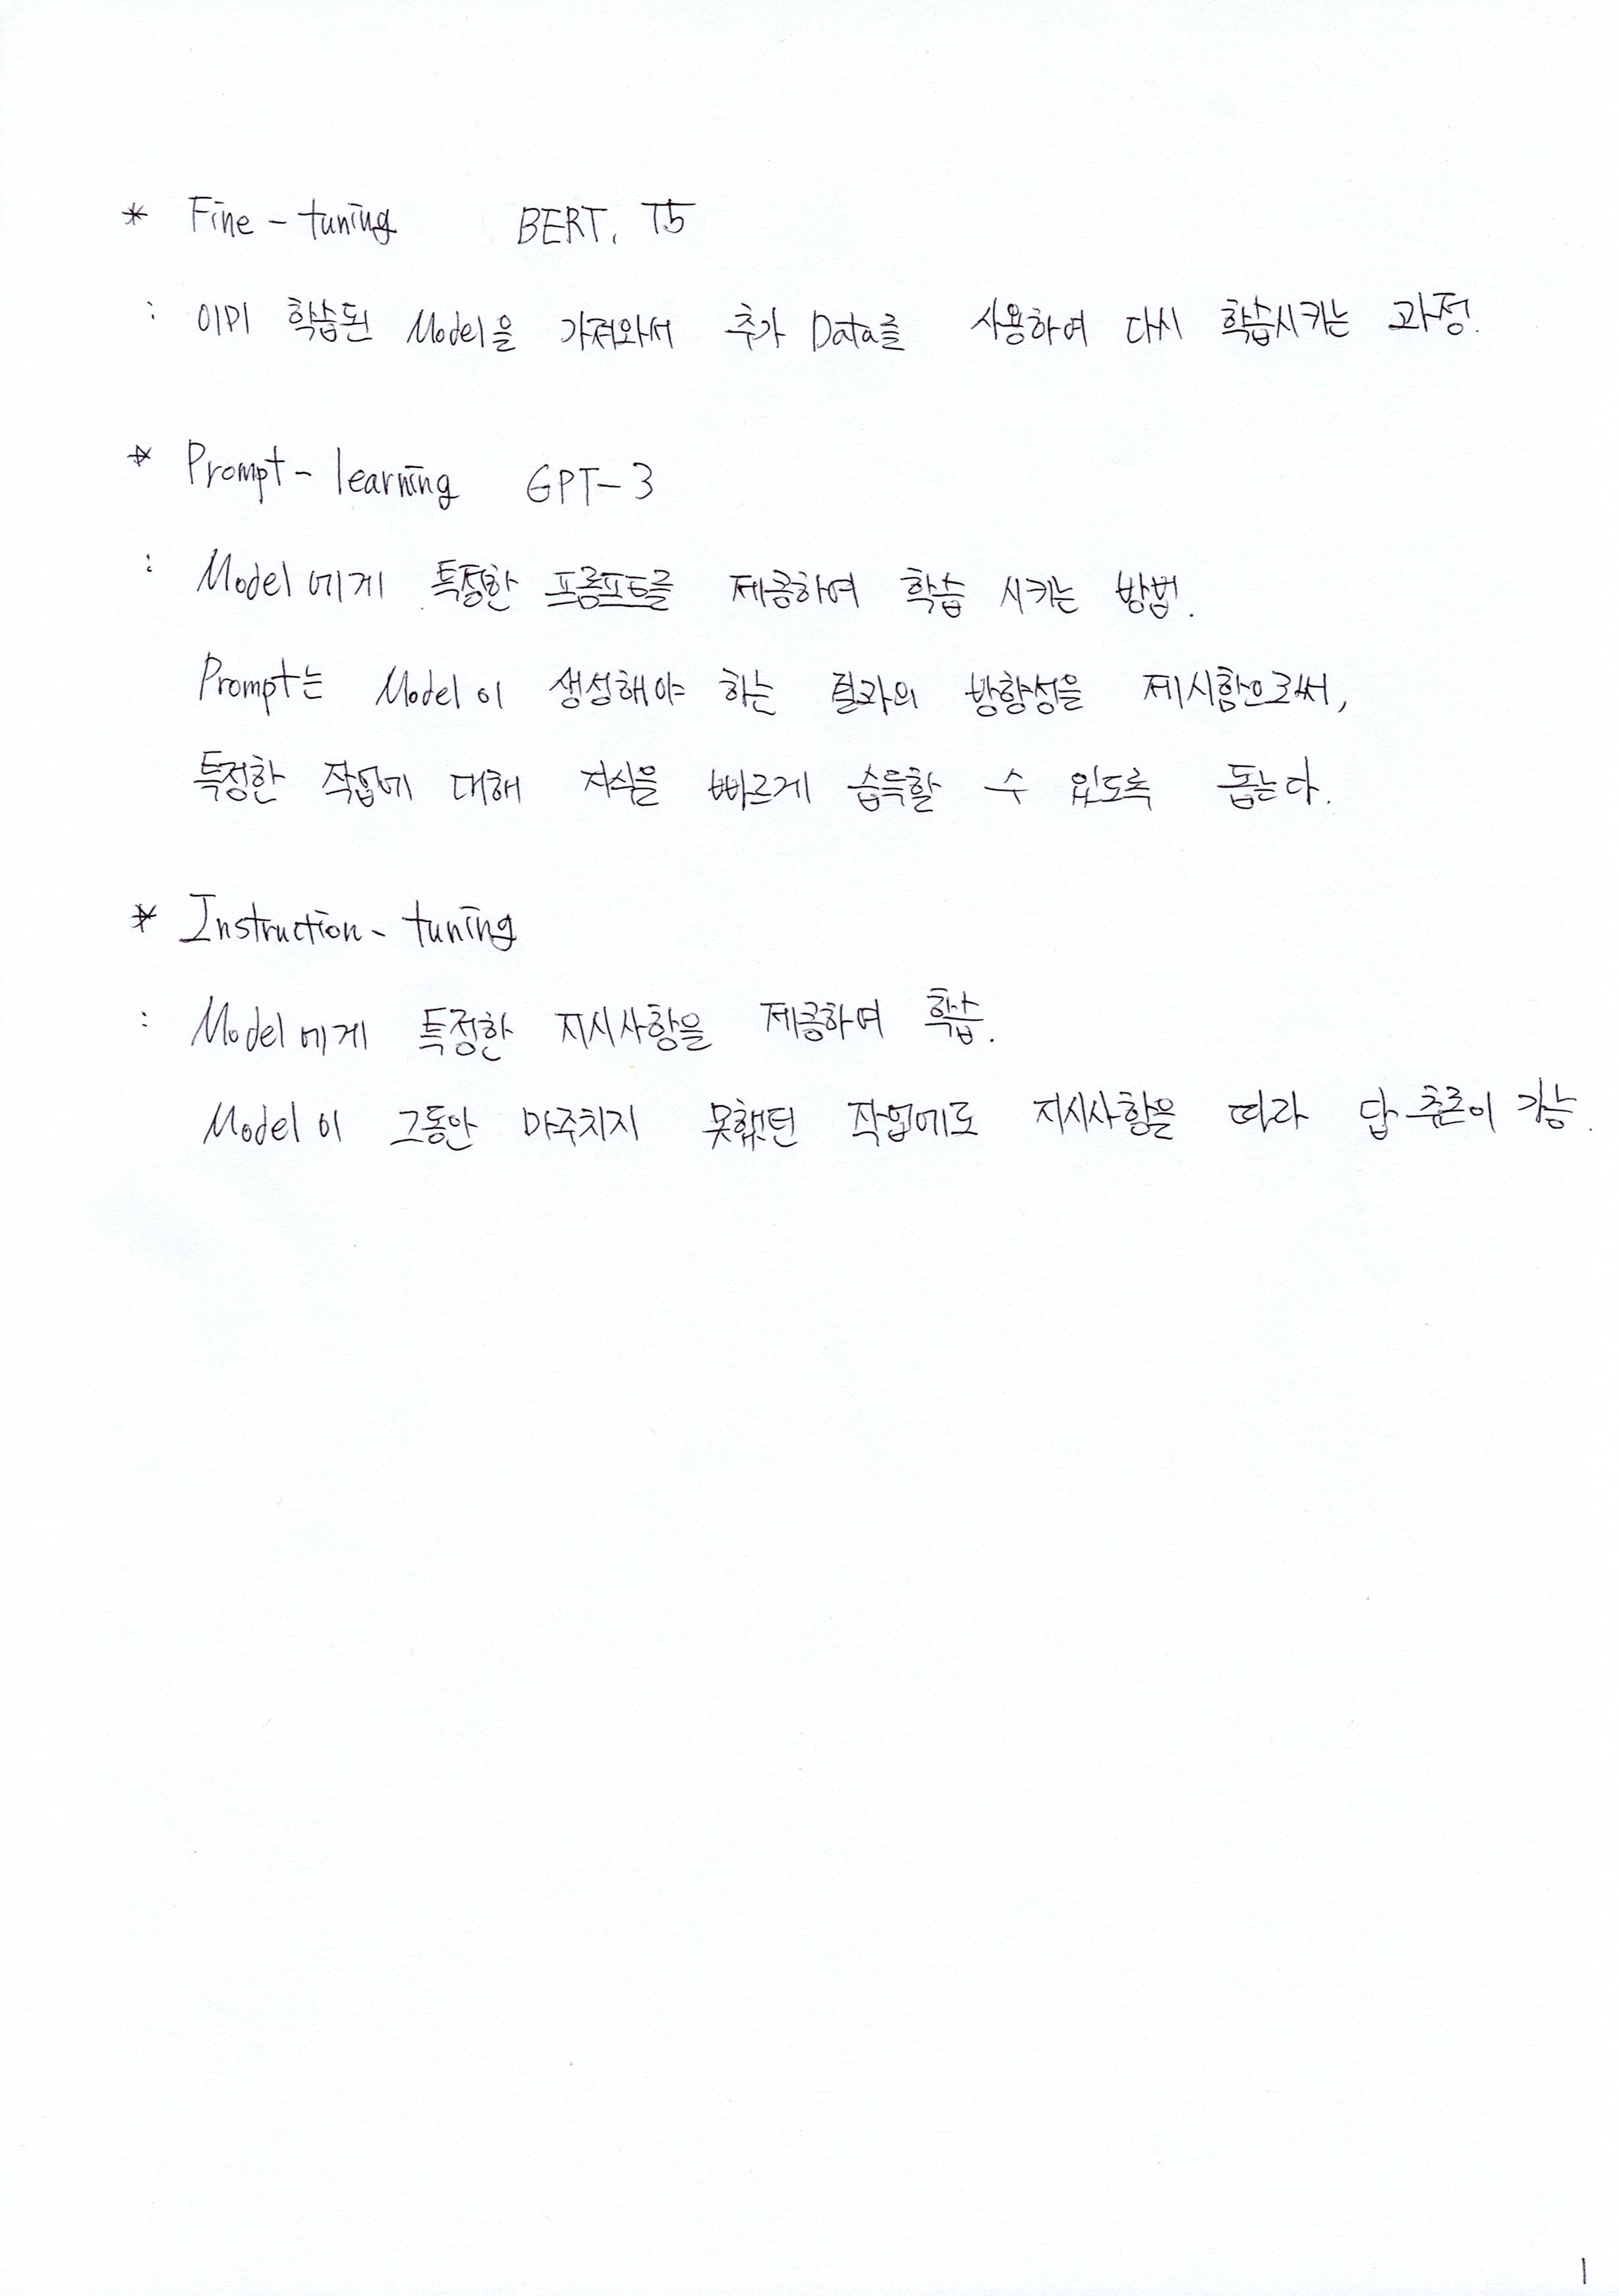 * Fine-tuning BERT, T5
: 이미 학습된 Model을 가져와서 추가 Data를 사용하여 다시 학습시키는 과정.
* Prompt-learning GPT-3
: Model에게 특정한 프롬프트를 제공하여 학습 시키는 방법.
Prompt는 Model이 생성해야 하는 결과의 방향성을 제시함으로써,
특정한 작업에 대해 지식을 빠르게 습득할 수 있도록 돕는다.
* Instruction-tuning
: Model에게 특정한 지시사항을 제공하여 학습.
Model이 그동안 마주치지 못했던 작업에도 지시사항을 따라 답 추론이 가능.
1